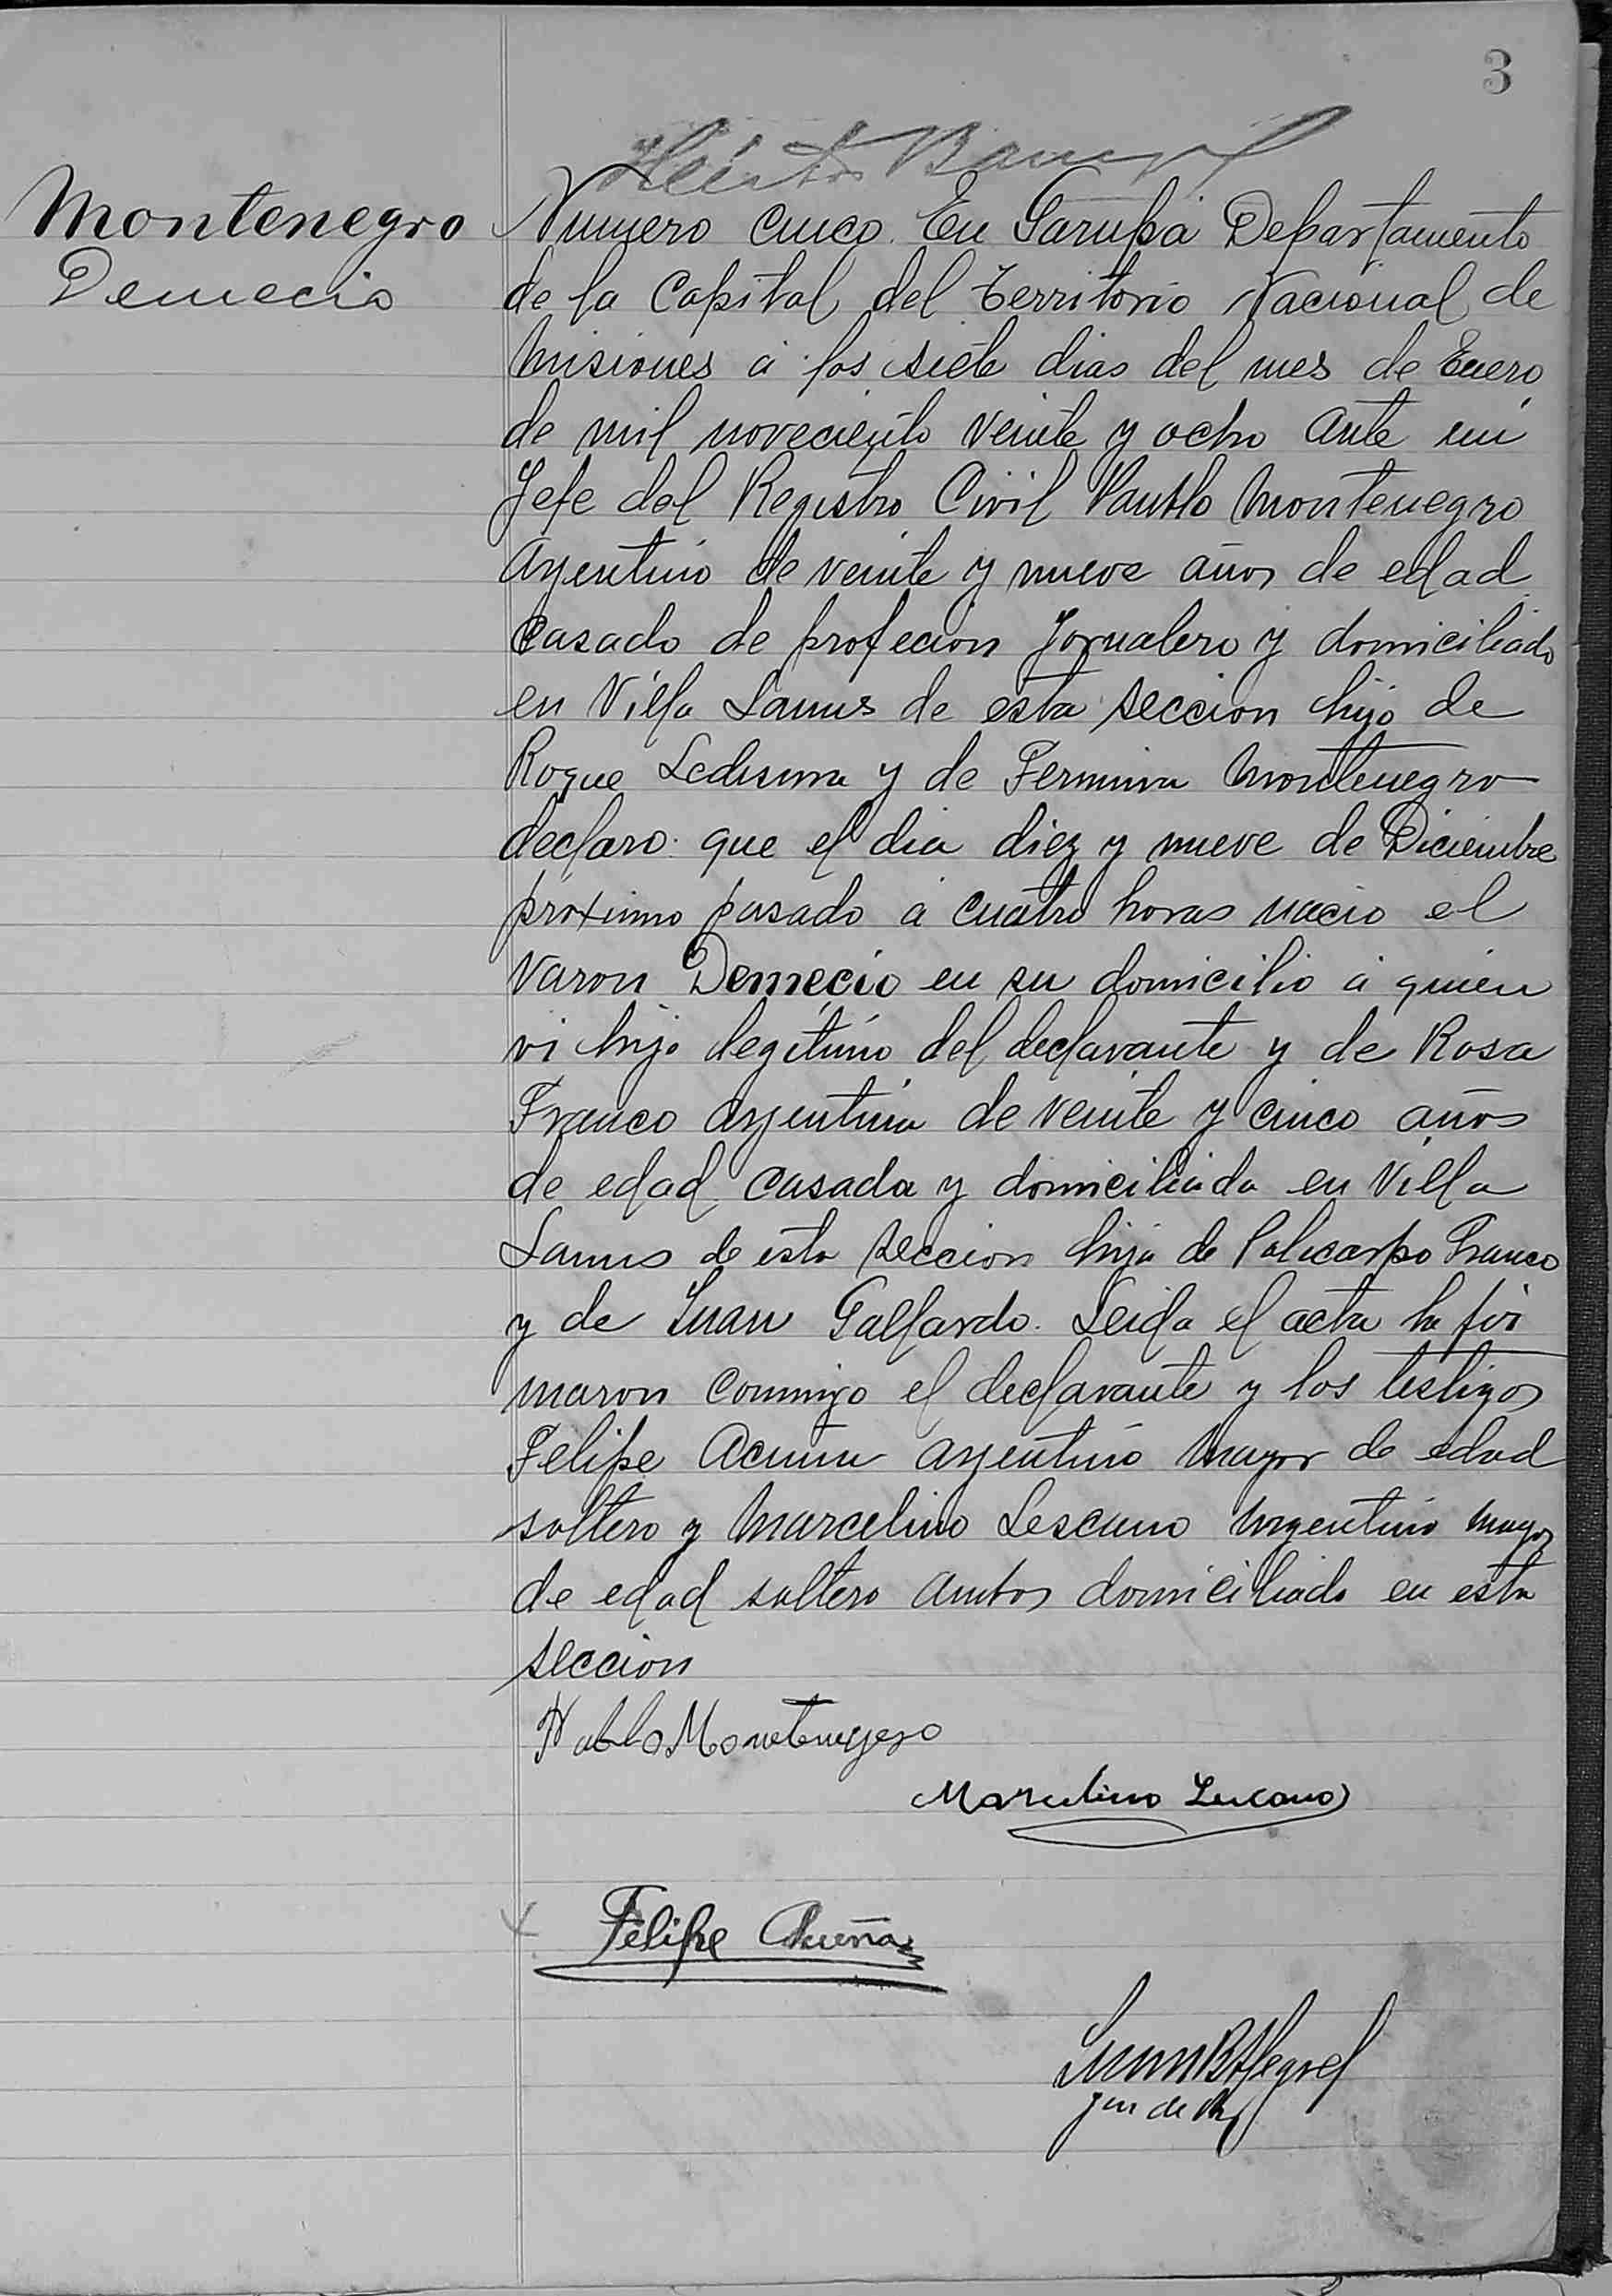 3
Montenegro
Demecio
Numero cinco. En Garupá Departamento
de la Capital del Territorio Nacional de
Misiones á los siete dias del mes de Enero
de mil noveciento veinte y ocho ante mi
Jefe del Registro Civil Pablo Montenegro
Argentino de veinte y nueve años de edad
casado de profecion Jornalero y domiciliado
en Villa Lanus de esta seccion hijo de
Roque Ledesma y de Fermina Montenegro
declaro: que el dia diez y nueve de Diciembre
proximo pasado á cuatro horas nacio el
varon Demecio en su domicilio á quien
vi hijo legitimo del declarante y de Rosa
Franco argentina de veinte y cinco años
de edad casada y domiciliada en Villa
Lanus de esta seccion hija de Policarpo Franco
y de Juan Gallardo. Leida el acta la fir
maron conmigo el declarante y los testigos
Felipe Acuña argentino mayor de edad
soltero y Marcelino Lescano argentino mayor
de edad soltero ambos domiciliado en esta
seccion
Pablo Montenegro
Marcelino Lescano
Felipe Acuña
Juan B Alegre